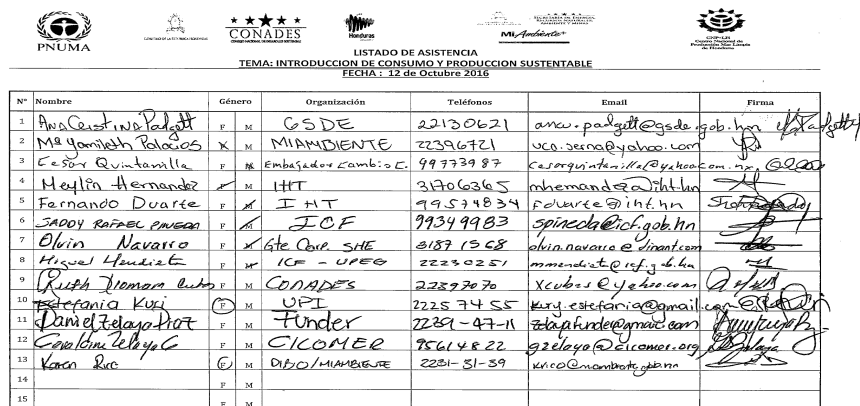 PNUMA
CONADES
Honduras
MiAmbiente
CNP+LH
Centro Nacional de
Producción Más Limpia
de Honduras
LISTADO DE ASISTENCIA
TEMA: INTRODUCCION DE CONSUMO Y PRODUCCION SUSTENTABLE
FECHA : 12 de Octubre 2016
N° Nombre Género Organización Teléfonos Email Firma
1 Ana Cristina Padgett F M GSDE 22130621 ana.padgett@gsde.gob.hn
2 Ma Yamileth Palacios M MIAMBIENTE 22396721 uca.serna@yahoo.com
3 Cesar Quintanilla F Embajador Cambio C. 99773987 cesarquintanilla@yahoo.com.mx
4 Meylin Hernandez F M IHT 31706365 mhernandez@iht.hn
5 Fernando Duarte F M IHT 99574834 fduarte@iht.hn
6 SADDY RAFAEL PINEDA F M ICF 99349983 spineda@icf.gob.hn
7 Olvin Navarro F M Gte Corp. SHE 3187 1568 olvin.navarro@dinant.com
8 Miguel Mendieta F M ICF - UPEG 22230251 mmendieta@icf.gob.hn
9 Ruth Xiomara Cubas F M CONADES 22397070 xcubas@yahoo.com
10 Estefania Kury F M UPI 2225 7455 kury.estefania@gmail.com
11 Daniel Zelaya Diaz F M Funder 2239-47-11 zelayafunder@gmail.com
12 Carolina Zelaya G F M CICOMER 9561 4822 gzelaya@cicomer.org
13 Karen Rico F M DIBO/MIAMBIENTE 2231-31-39
14 F M
15 F M